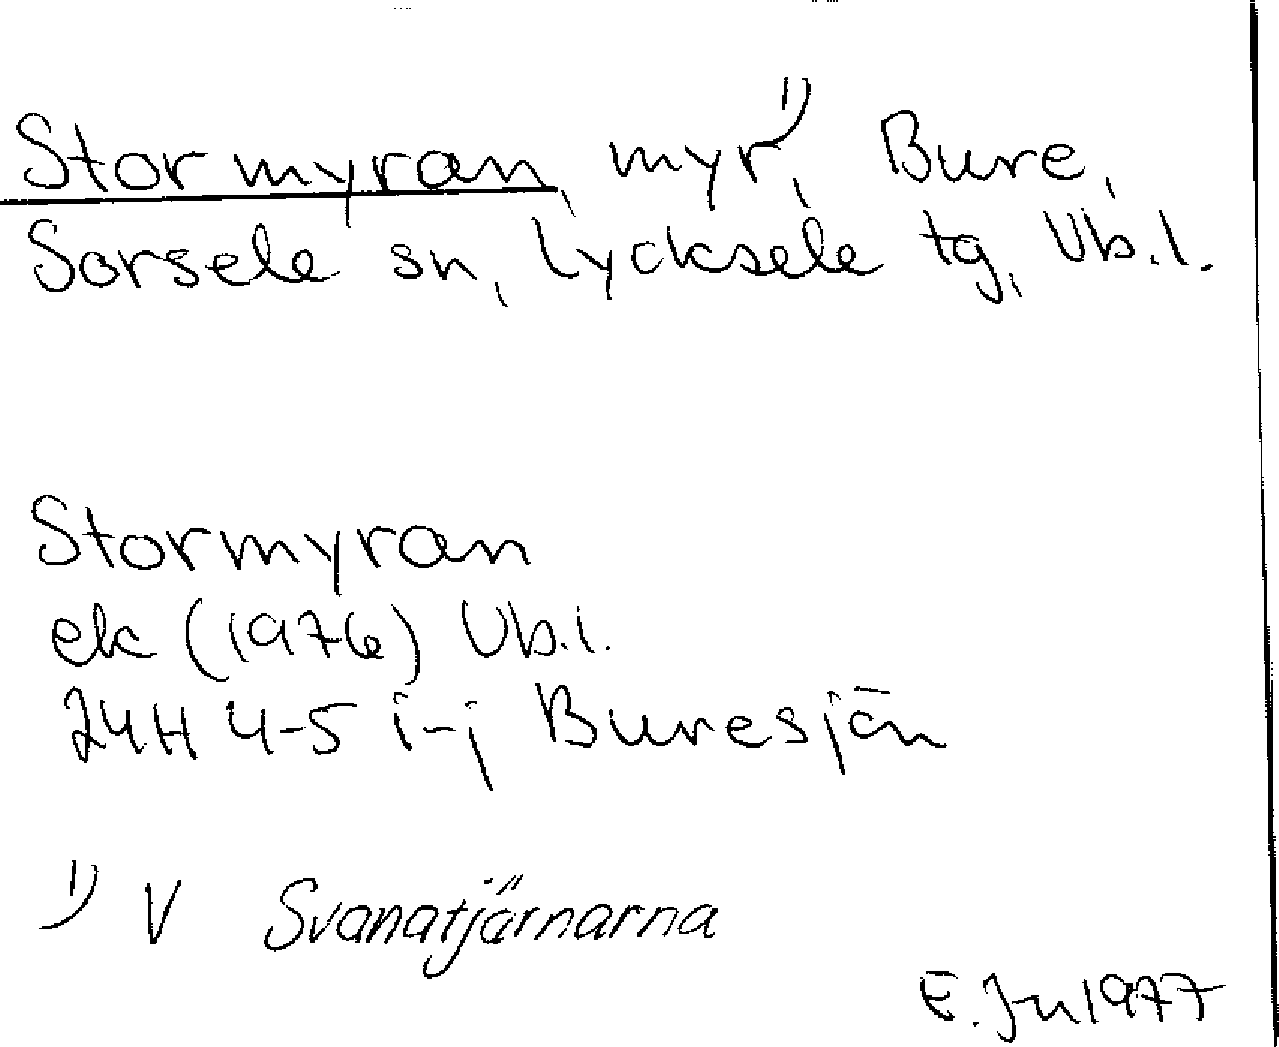 Stormyran, myr¹⁾, Bure,
Sorsele sn, Lycksele tg, Vb.l.
Stormyran
ek (1976) Vb.l.
24H 4-5 i-j Buresjön
¹⁾ V Svanatjärnarna
E. Jn 1977